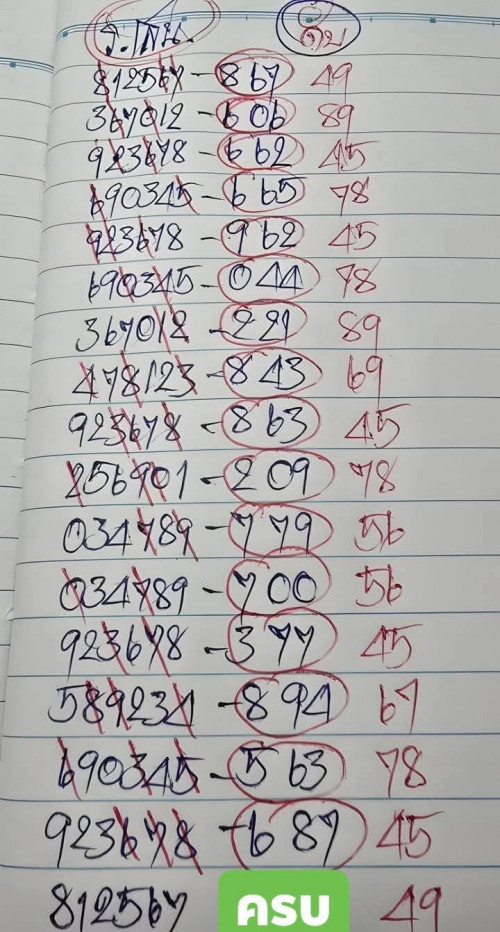 ร.เทน ดับ
812567 - 867 49
367012 - 606 89
923678 - 662 45
690345 - 665 78
923678 - 962 45
690345 - 044 78
367012 - 221 89
478123 - 843 69
923678 - 863 45
256901 - 209 78
034789 - 779 56
034789 - 700 56
923678 - 377 45
589234 - 894 67
690345 - 563 78
923678 - 687 45
812567 ครบ 49